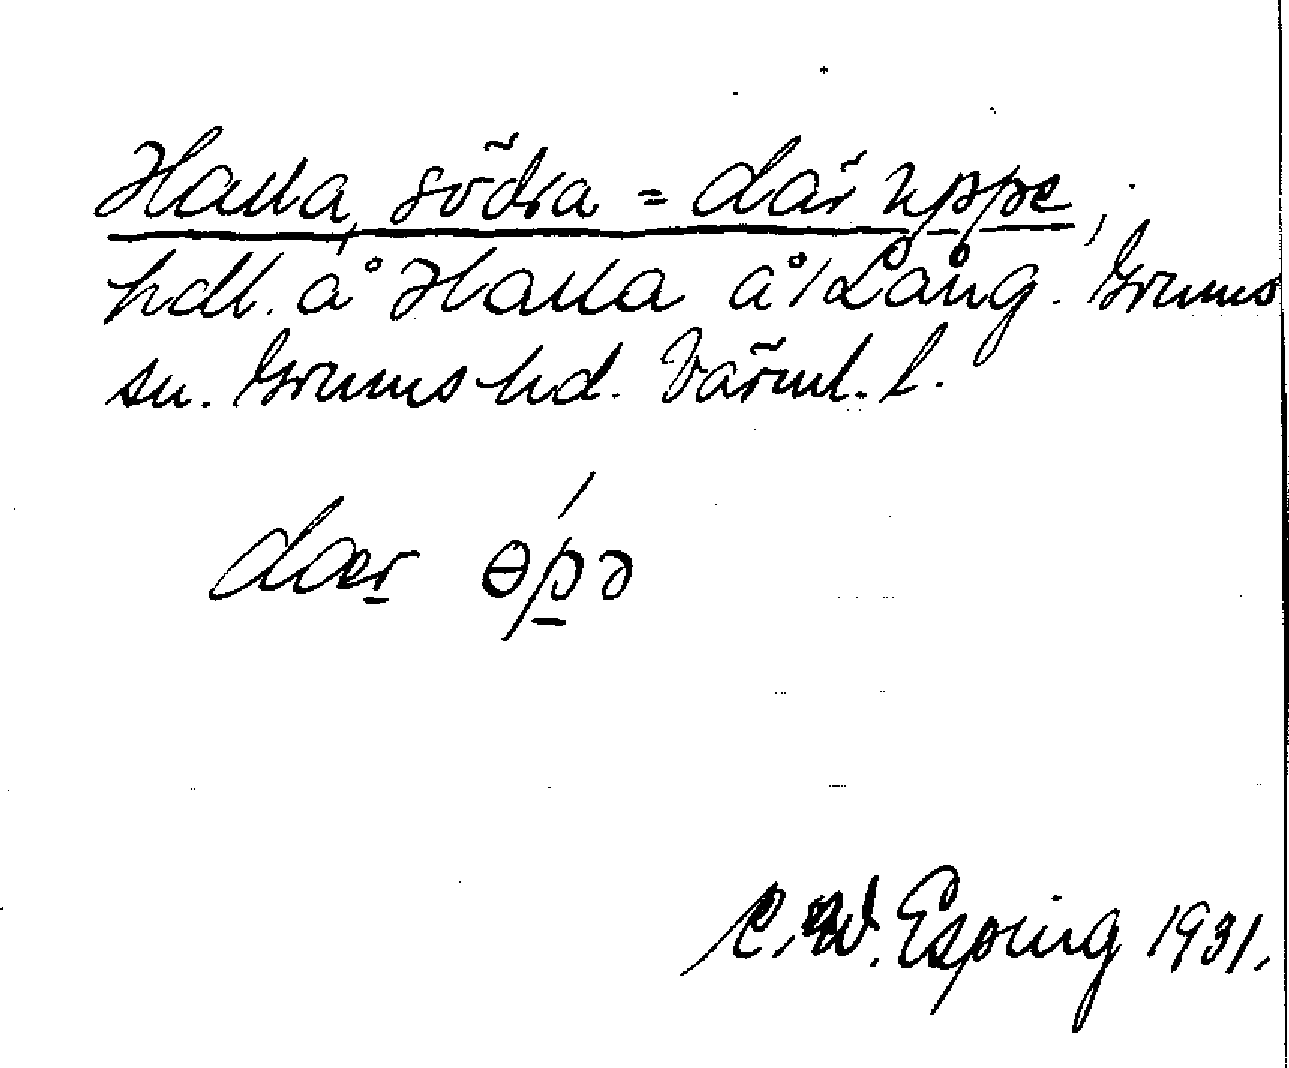 Halla, södra = där uppe,
hdl. å Halla å/Lång. Grums
sn. Grums hd. Värml. l.
dær ɵpə
C. W. Esping 1931.